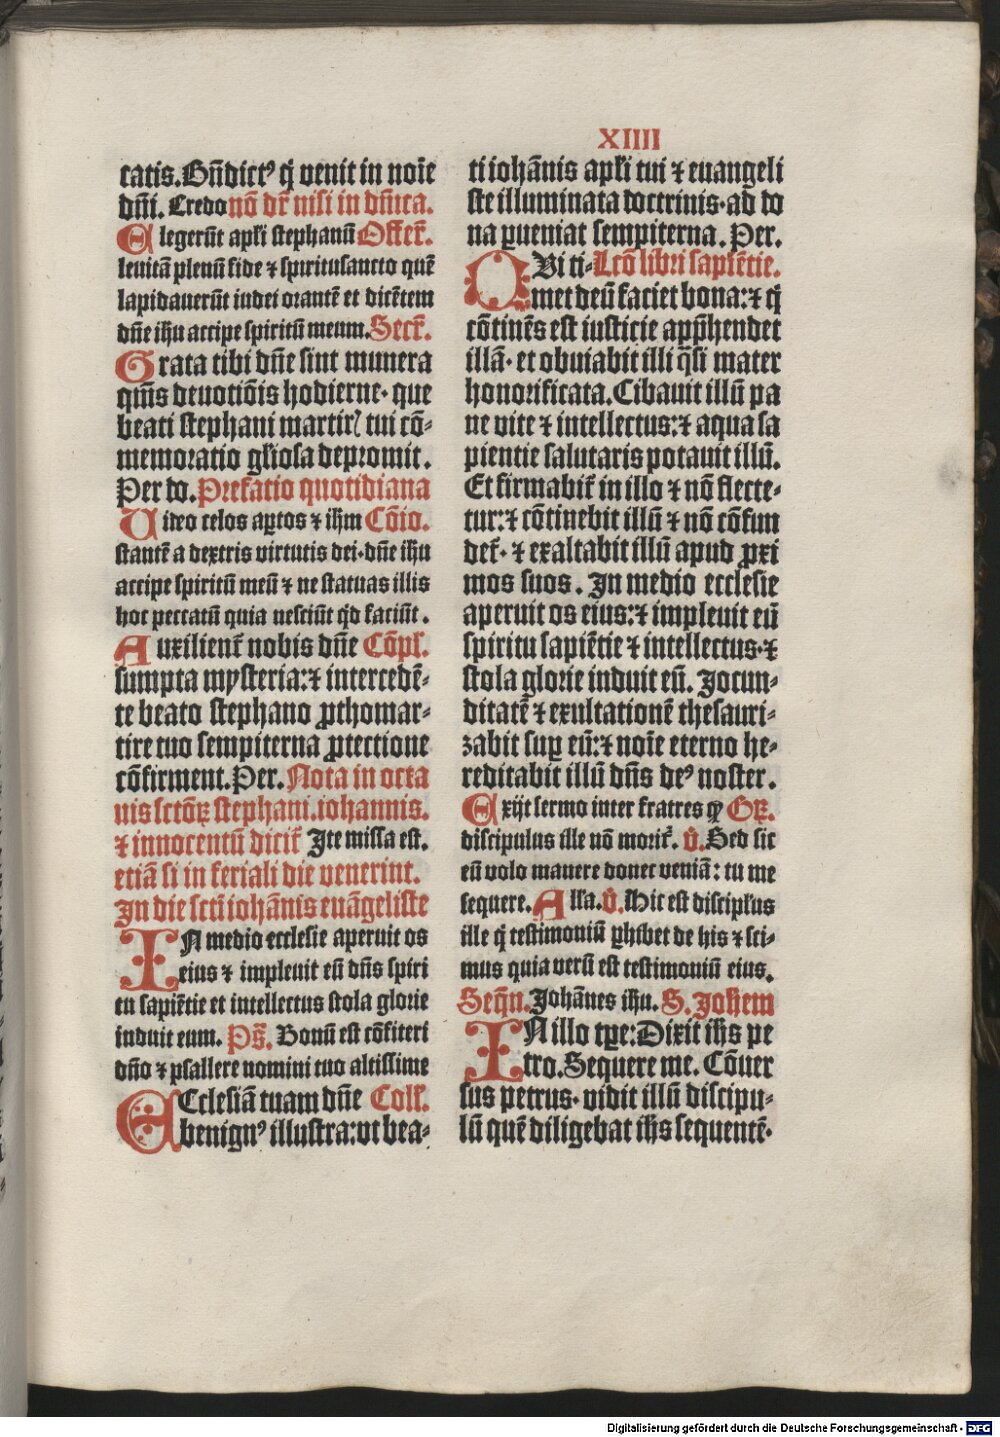 XIIII
catis. Bn̄dictꝰ q̄ venit in noīe
dn̄i. Credo nō dr̄ nisi in dn̄ica.
Elegerūt apl̄i stephanū Offer̄.
leuitā plenū fide ⁊ spiritusancto quē
lapidauerūt iudei orantē et dicētem
dn̄e ihu accipe spiritū meum. Secr̄.
Grata tibi dn̄e sint munera
qm̄s deuotiōis hodierne· que
beati stephani martirꝭ tui cō-
memoratio gl̄iosa depromit.
Per do. Prefatio quotidiana
Uideo celos aꝑtos ⁊ ihm Cōio.
stantē a dextris virtutis dei· dn̄e ihu
accipe spiritū meū ⁊ ne statuas illis
hoc peccatū quia nesciūt qd̄ faciūt.
Auxilient᷑ nobis dn̄e Cōpl.
sumpta mysteria:⁊ intercedē-
te beato stephano ꝓthomar-
tire tuo sempiterna ꝓtectione
cōfirment. Per. Nota in octa
uis sctōꝝ stephani. iohannis.
⁊ innocentū dicit᷑ Ite missa est.
etiā si in feriali die venerint.
In die scti iohānis euāgeliste
IN medio ecclesie aperuit os
eius ⁊ impleuit eū dn̄s spiri
tu sapiētie et intellectus stola glorie
induit eum. Ps̄. Bonū est cōfiteri
dn̄o ⁊ psallere nomini tuo altissime
ECclesiā tuam dn̄e Coll̄.
benignꝰ illustra: vt bea-
ti iohānis apl̄i tui ⁊ euangeli
ste illuminata doctrinis· ad do
na ꝑueniat sempiterna. Per.
QVi ti- Lcō libri sapiētie.
met deū faciet bona:⁊ q̄
cōtinēs est iusticie app̄hendet
illā· et obuiabit illi q̄si mater
honorificata. Cibauit illū pa
ne vite ⁊ intellectus:⁊ aqua sa
pientie salutaris potauit illū.
Et firmabit᷑ in illo ⁊ nō flecte-
tur:⁊ cōtinebit illū ⁊ nō cōfun
det᷑· ⁊ exaltabit illū apud ꝓxi
mos suos. In medio ecclesie
aperuit os eius:⁊ impleuit eū
spiritu sapiētie ⁊ intellectus·⁊
stola glorie induit eū. Jocun-
ditatē ⁊ exultationē thesauri-
zabit suꝑ eū:⁊ noīe eterno he-
reditabit illū dn̄s deꝰ noster.
Exijt sermo inter fratres ꝙ Gꝝ.
discipulus ille nō morit᷑. V̄. Sed sic
eū volo manere donec veniā: tu me
sequere. Alla. V̄. Hic est discipl̄us
ille q̄ testimoniū ꝑhibet de his ⁊ sci-
mus quia verū est testimoniū eius.
Seqn̄. Johānes ihu. S. Johem
IN illo tꝑe: Dixit ihs pe
tro. Sequere me. Cōuer
sus petrus· vidit illū discipu-
lū quē diligebat ihs sequentē·
Digitalisierung gefördert durch die Deutsche Forschungsgemeinschaft - DFG